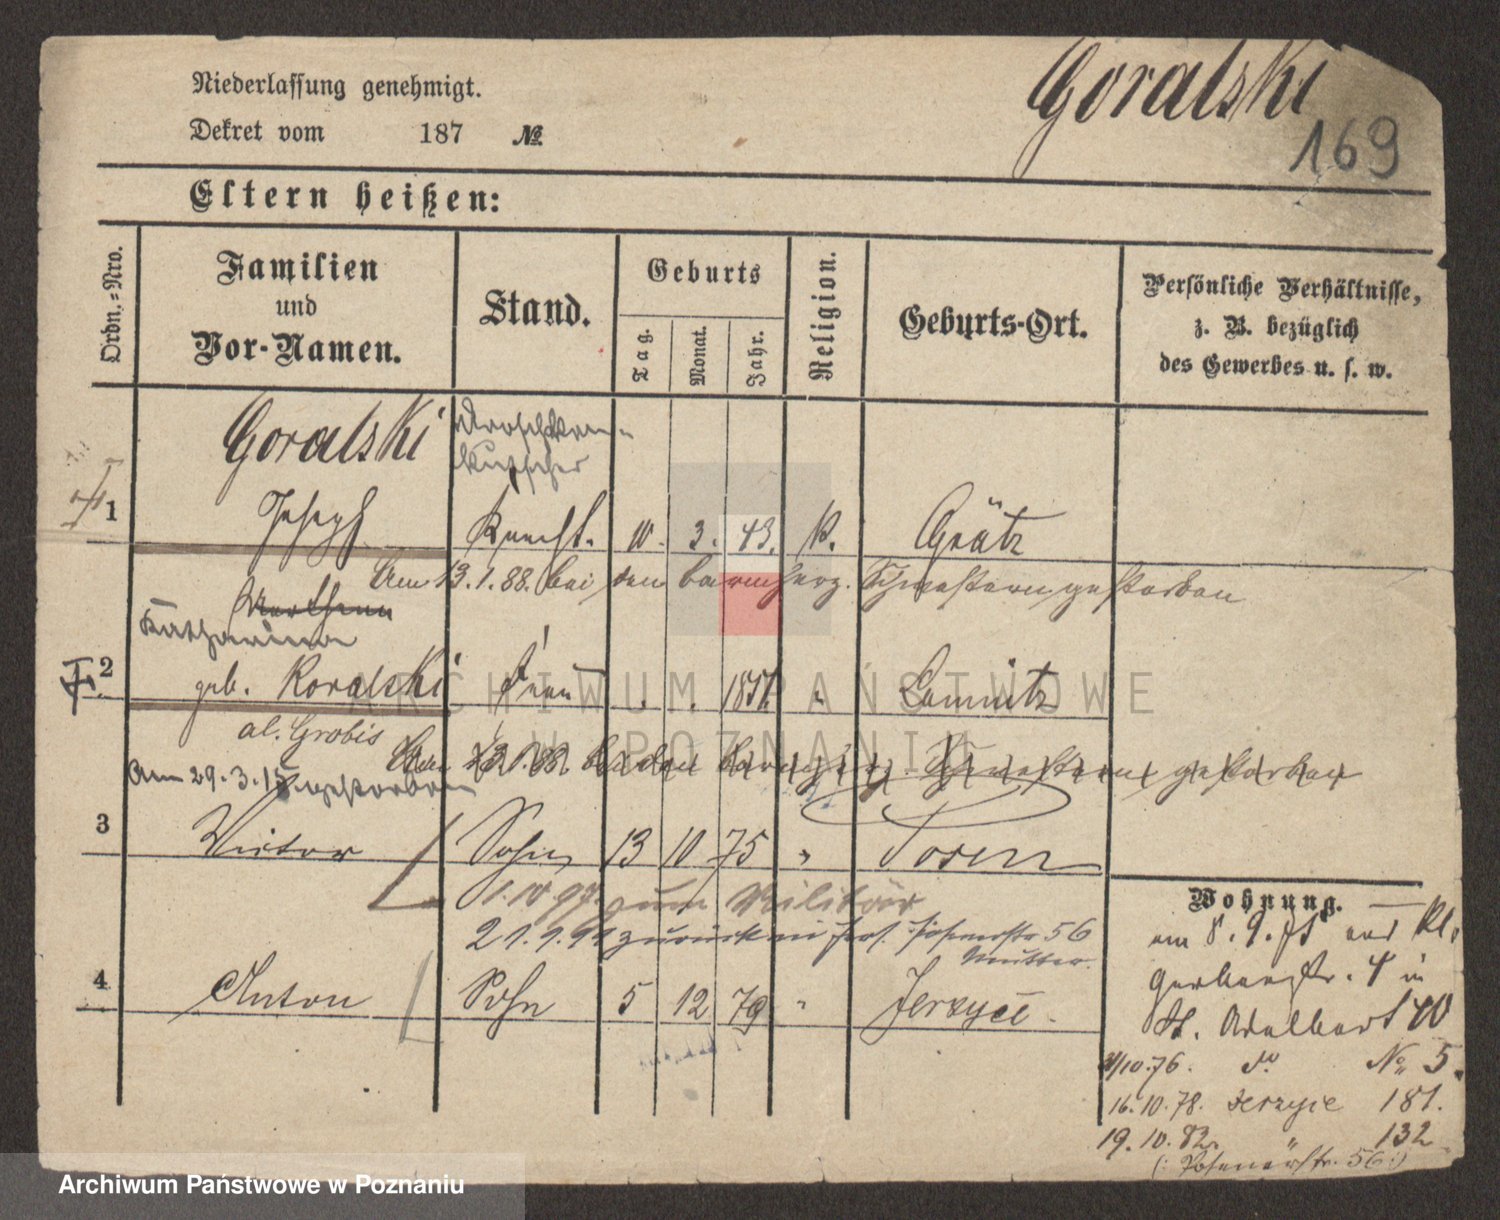 Goralski
169
Niederlassung genehmigt.
Dekret vom 187 №
Eltern heißen:
Ordn.=Nro.
Familien und Vor-Namen.
Stand.
Geburts
Tag.
Monat.
Jahr.
Religion.
Geburts-Ort.
Persönliche Verhältnisse,
z. B. bezüglich
des Gewerbes u. s. w.
Goralski Droschken-
kutscher
1 Joseph Knecht. 10. 3. 43. K. Grätz
Am 13.1.88. bei den barmherz. Schwestern gestorben
Katharina
2 geb. Koralski Frau 1851. " Lomnitz
al. Grobis
Am 13.1.88. bei den barmherz. Schwestern gestorben
am 29.3.15 gestorben
3 Victor Sohn 13 10 75 " Posen
1.10.97. zum Militär
zurück Posenerstr 56
Mutter.
4 Anton Sohn 5 12 79 " Jerzyce.
Wohnung.
am 8.9.75 aus Kl.
Gerberstr. 4 in
St. Adalbert 40
/10.76. do No. 5.
16.10.78. Jerzyce 181.
19.10.82. " 132
(: Posenerstr. 56 :)
ARCHIWUM PAŃSTWOWE
W POZNANIU
Archiwum Państwowe w Poznaniu